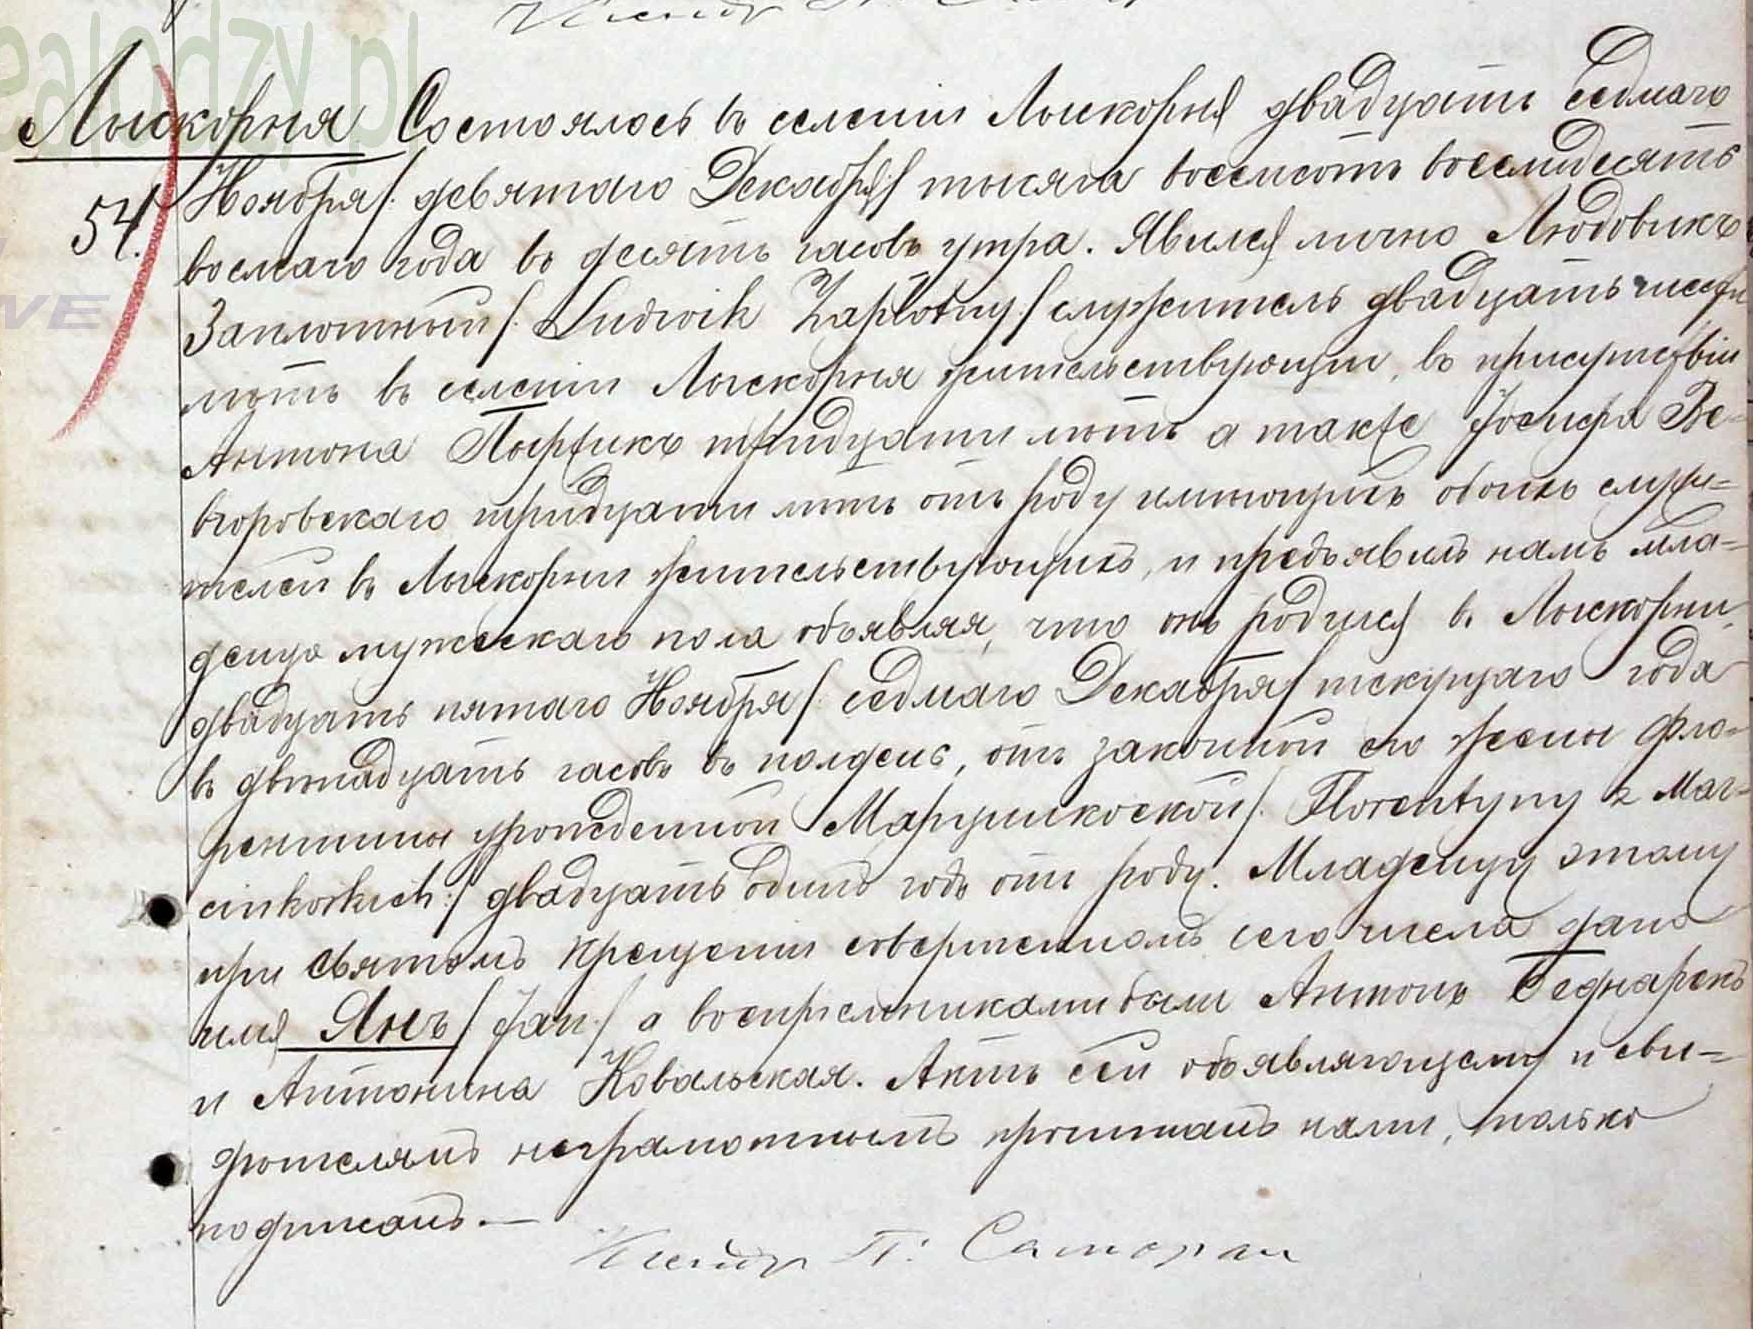 Лыскорня Состоялось въ селеніи Лыскорня двадцать седмаго
54. Ноября /: девятаго Декабря :/ тысяча восемсотъ восемдесятъ
восмаго года въ десять часовъ утра. Явился лично Людовикъ
Заплотный /: Ludwik Zapłotny :/ служитель двадцать шесть
лѣтъ въ селеніи Лыскорня жительствующій, въ присутствіи
Антона тридцати лѣтъ а также Іосифа
тридцати лѣтъ отъ роду имѣющихъ обоихъ служи=
телей въ Лыскорни жительствующихъ, и предъявилъ намъ мла=
денца мужескаго пола объявляя, что онъ родился въ Лыскорни,
двадцать пятаго Ноября /: седмаго Декабря :/ текущаго года
въ двѣнадцать часовъ въ полдень, отъ законной его жены Фло=
рентины урожденной /: Florentyny z Mar=
cinkoskich :/ двадцать одинъ годъ отъ роду. Младенцу этому
при Святомъ Крещеніи совершенномъ сего числа дано
имя Янъ /: Jan :/ а воспріемниками были Антонъ Беднарекъ
и Антонина Ковальская. Актъ сей объявляющему и сви=
дѣтелямъ неграмотнымъ прочитанъ нами, только
подписанъ. —
Ксендзъ П: